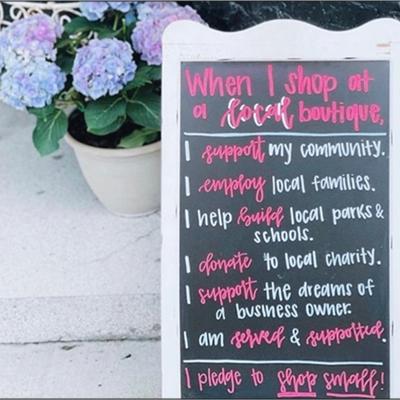 When I shop at
a local boutique,
I support my community.
I employ local families.
I help build local parks &
schools.
I donate to local charity.
I support the dreams of
a business owner.
I am served & supported.
I pledge to shop small!